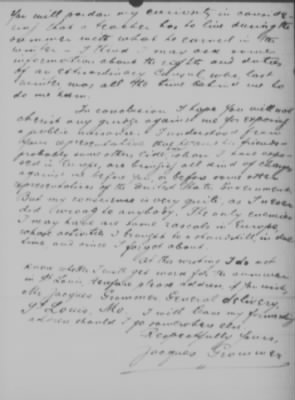 You will pardon my curiosity in consider-
ing that a teacher has to live during the
summer with what he earned in the
winter - I think I may ask some
information about the rights and duties
of an extraordinary Consul who, last
winter was all the time behind me to
do me harm.
In conclusion I hope you will not
cherish any grudge against me for exposing
a public nuisance. I understood from
your representative that friends
probably some others side whom I have expo-
sed in Europe, are bringing all kind of charges
against me before you, or before some other
representatives of the United States Government.
But my conscience is very quiet, as I never
did wrong to anybody. The only enemies
I may have are some rascals in Europe,
whose activities I brought to a standstill in due
time and since I forgot about.
At this writing I do not
know whether I will get work for the summer
in St Louis, therefore please address if you wish,
Mr Jacques Grommer General delivery,
St Louis, Mo. I will leave my forwarding
address should I go somewhere else.
Respectfully Yours,
Jacques Grommer